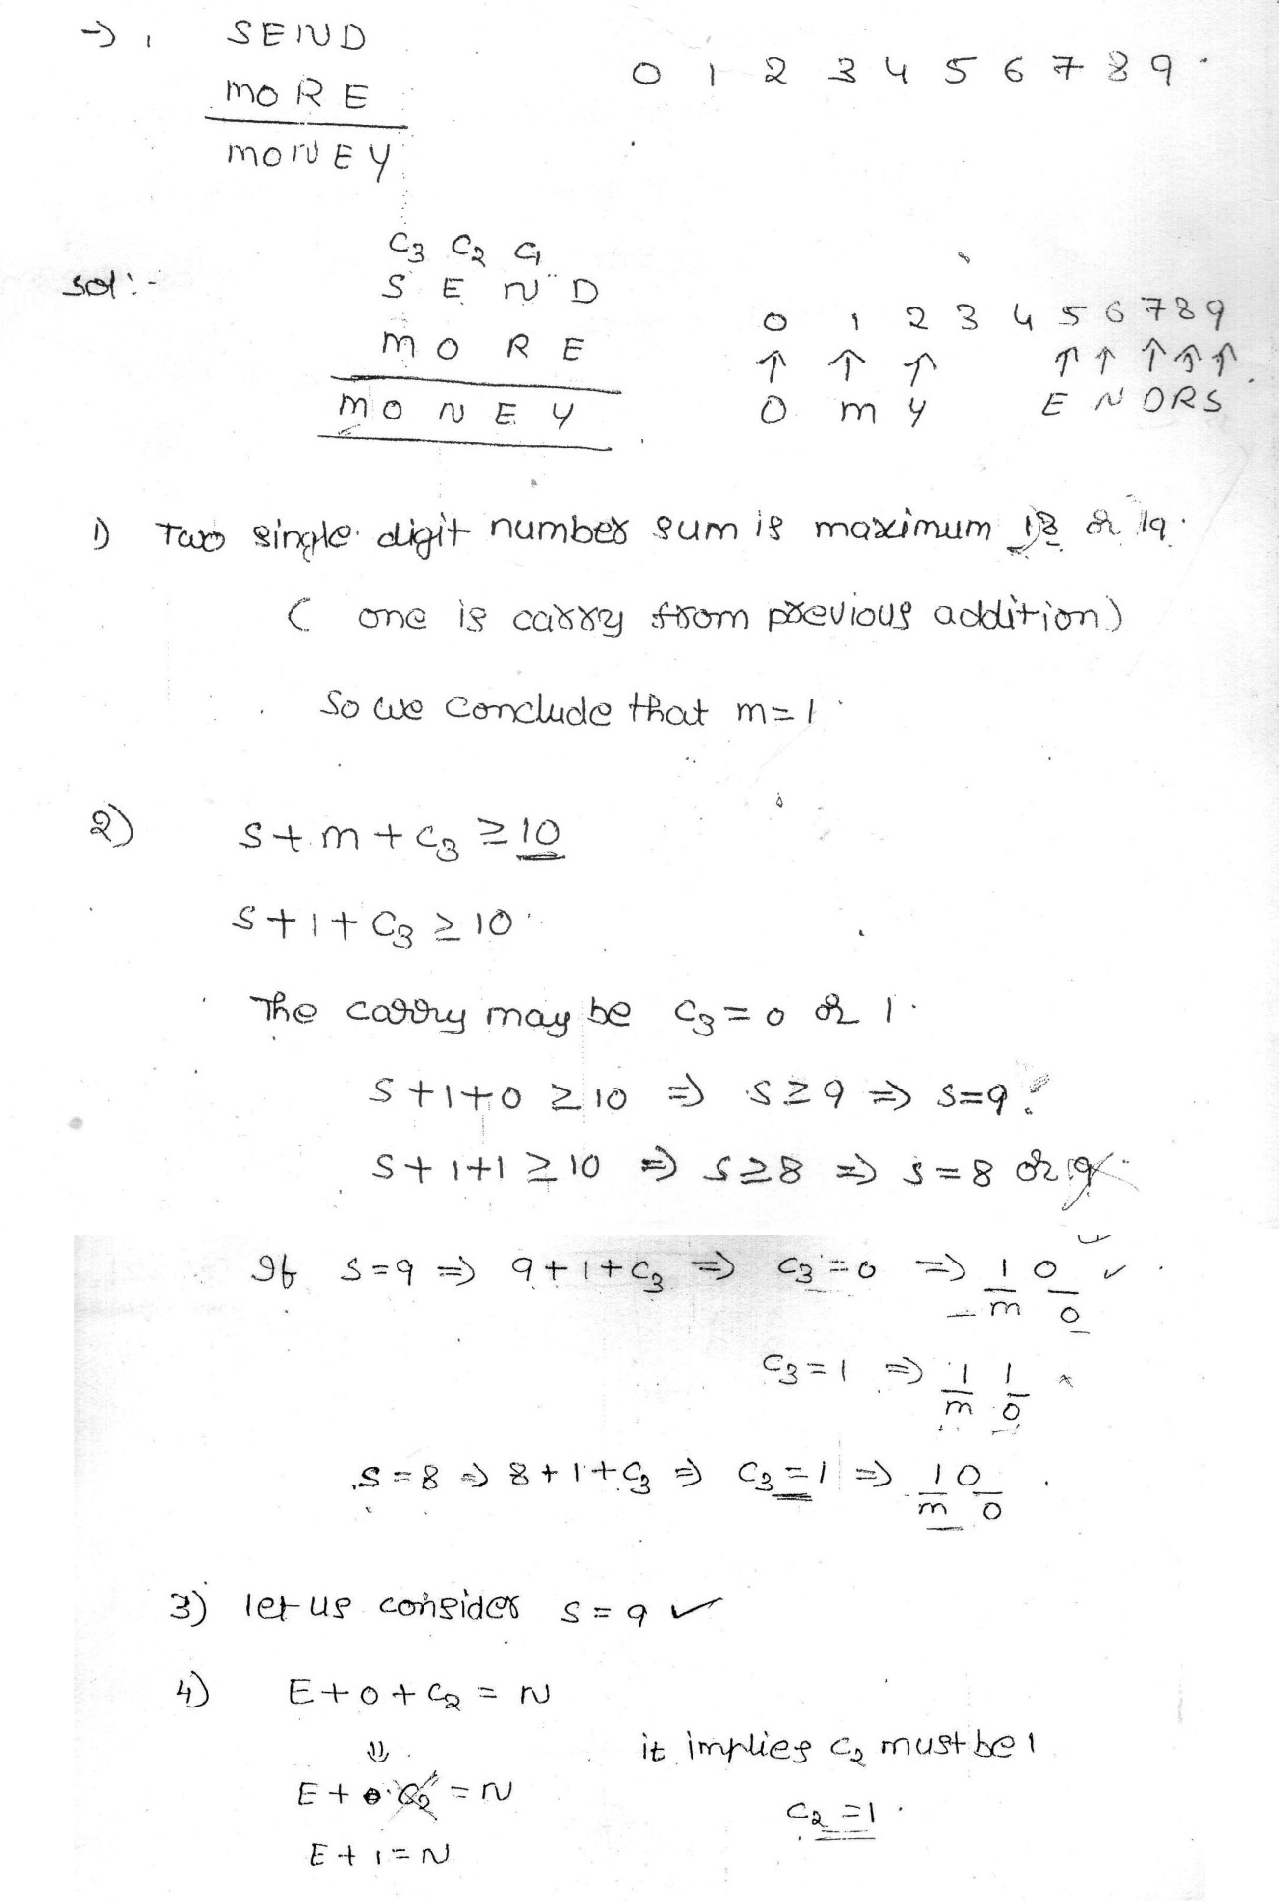 →) 1 SEND
MORE
MONEY
0 1 2 3 4 5 6 7 8 9
sol :-
C3 C2 C1
S E N D
M O R E
M O N E Y
0 1 2 3 4 5 6 7 8 9
↑ ↑ ↑ ↑ ↑ ↑ ↑ ↑
O M Y E N D R S
1) Two single digit number sum is maximum 18 or 19.
( one is carry from previous addition)
So we conclude that m=1
2) S+m+C3 ≥ 10
S+1+C3 ≥ 10
The carry may be C3=0 or 1.
S+1+0 ≥ 10 ⇒ S≥9 ⇒ S=9
S+1+1 ≥ 10 ⇒ S≥8 ⇒ S=8 or 9
If S=9 ⇒ 9+1+C3 ⇒ C3=0 ⇒ 1 0 ✓
m 0
C3=1 ⇒ 1 1 ×
m 0
S=8 ⇒ 8+1+C3 ⇒ C3=1 ⇒ 1 0
m 0
3) let us consider S=9 ✓
4) E+0+C2 = N
⇓
it implies C2 must be 1
E+0 C2 = N
C2=1.
E+1=N